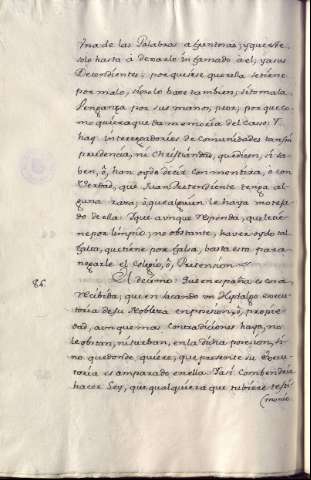 Una de las Palabras afrentosas; y que este
solo basta à dexarle infamado à el, y a sus
Decendientes; por que si se querella se tiene
por malo, si no lo hace tambien; si toma la
Venganza por sus manos, peor; por que co-
mo quiera queda memoria del Caso: Y
hay interrogatorios de Comunidades tan sin
prudencia, ni Christiandad, que dicen, si sa-
ben, ò, han oydo decir con mentira, o con
Verdad, que Juan Pretendiente tenga al-
guna raza, ò que alguien le haya moteja-
do de ella: Y que aunque responda, que le tie-
ne por limpio; no obstante, haver oydo tal
falta, que tiene por falsa, basta esta para
negarle el Colegio, ò, Pretension.
86. El decimo: Que en españa es cosa
recibida, que en sacando un Hydalgo execu-
toria de su Nobleza en posesion, ò, proprie-
dad, aunque mas contradiciones haya, no
le obstan, ni turban, en la dicha posesion, si
no que donde quiere, que presente su Execu-
toria es amparado en ella. Y asi combendria
hacer Ley, que qualquiera que tubiere testi
(monio